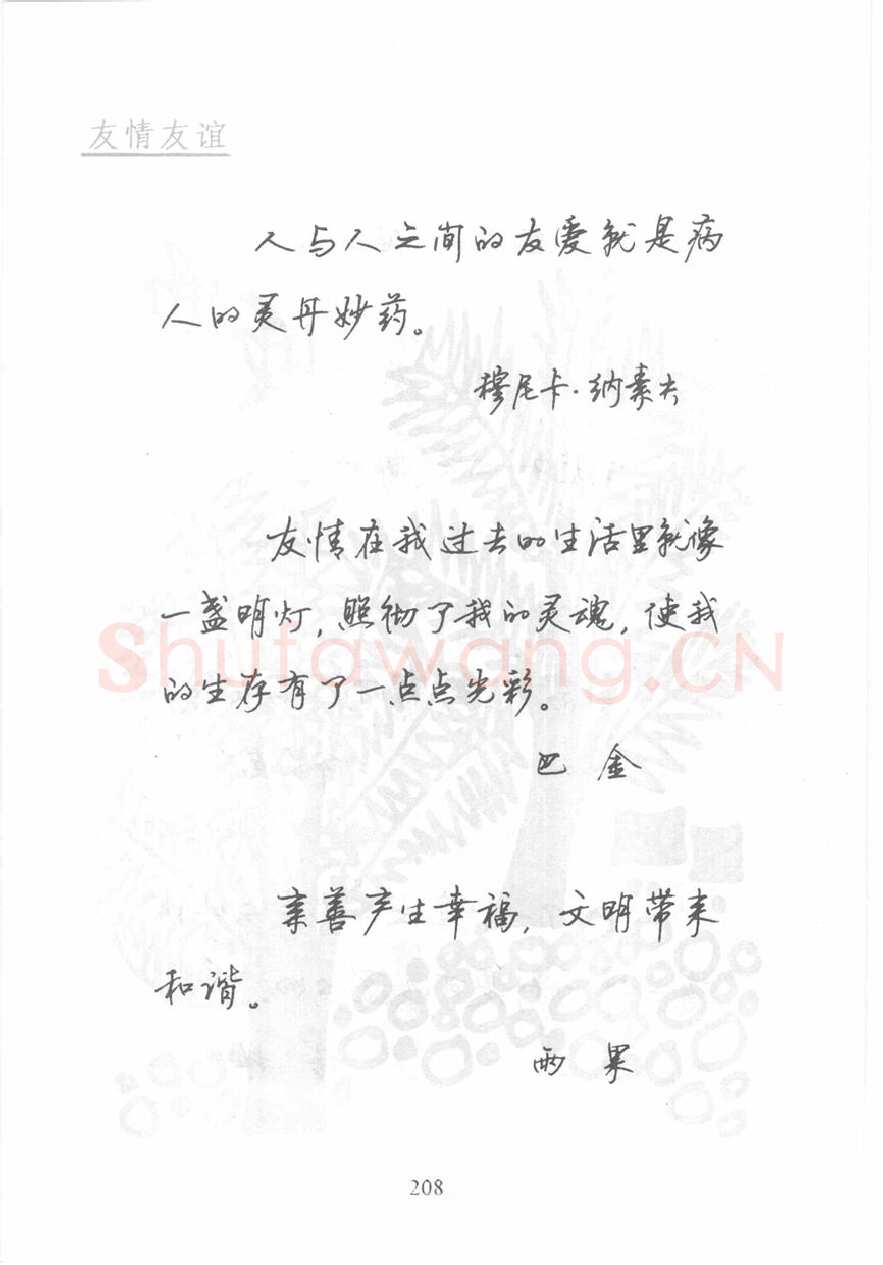 友情友谊
人与人之间的友爱就是病
人的灵丹妙药。
穆尼卡·纳素夫
友情在我过去的生活里就像
一盏明灯,照彻了我的灵魂,使我
的生存有了一点点光彩。
Shufawang.CN
巴金
亲善产生幸福,文明带来
和谐。
雨果
208